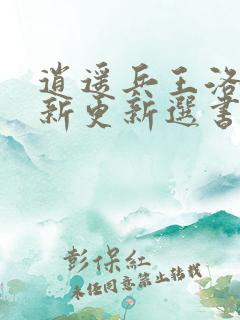 逍遥兵王洛
新更新選書
彭保紅
未经同意禁止转载